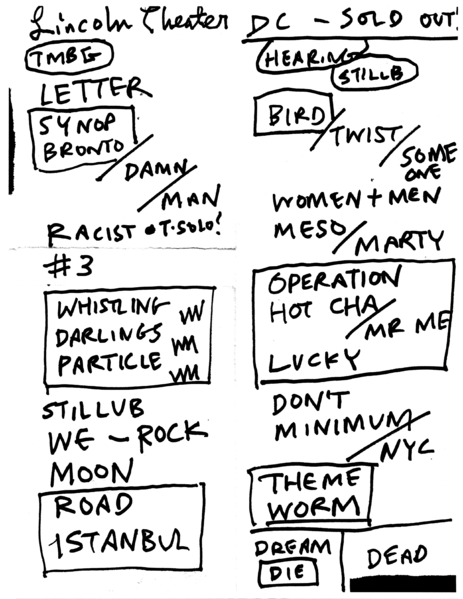 Lincoln Theater DC - SOLD OUT!
TMBG
LETTER
SYNOP
BRONTO
DAMN
MAN
RACIST • T.SOLO!
#3
WHISTLING
DARLINGS
PARTICLE
STILLUB
WE - ROCK
MOON
ROAD
ISTANBUL
HEARING
STILLB
BIRD
TWIST
SOME
ONE
WOMEN + MEN
MESO / MARTY
OPERATION
HOT CHA
MR ME
LUCKY
DON'T
MINIMUM
NYC
THEME
WORM
DREAM
DIE
DEAD